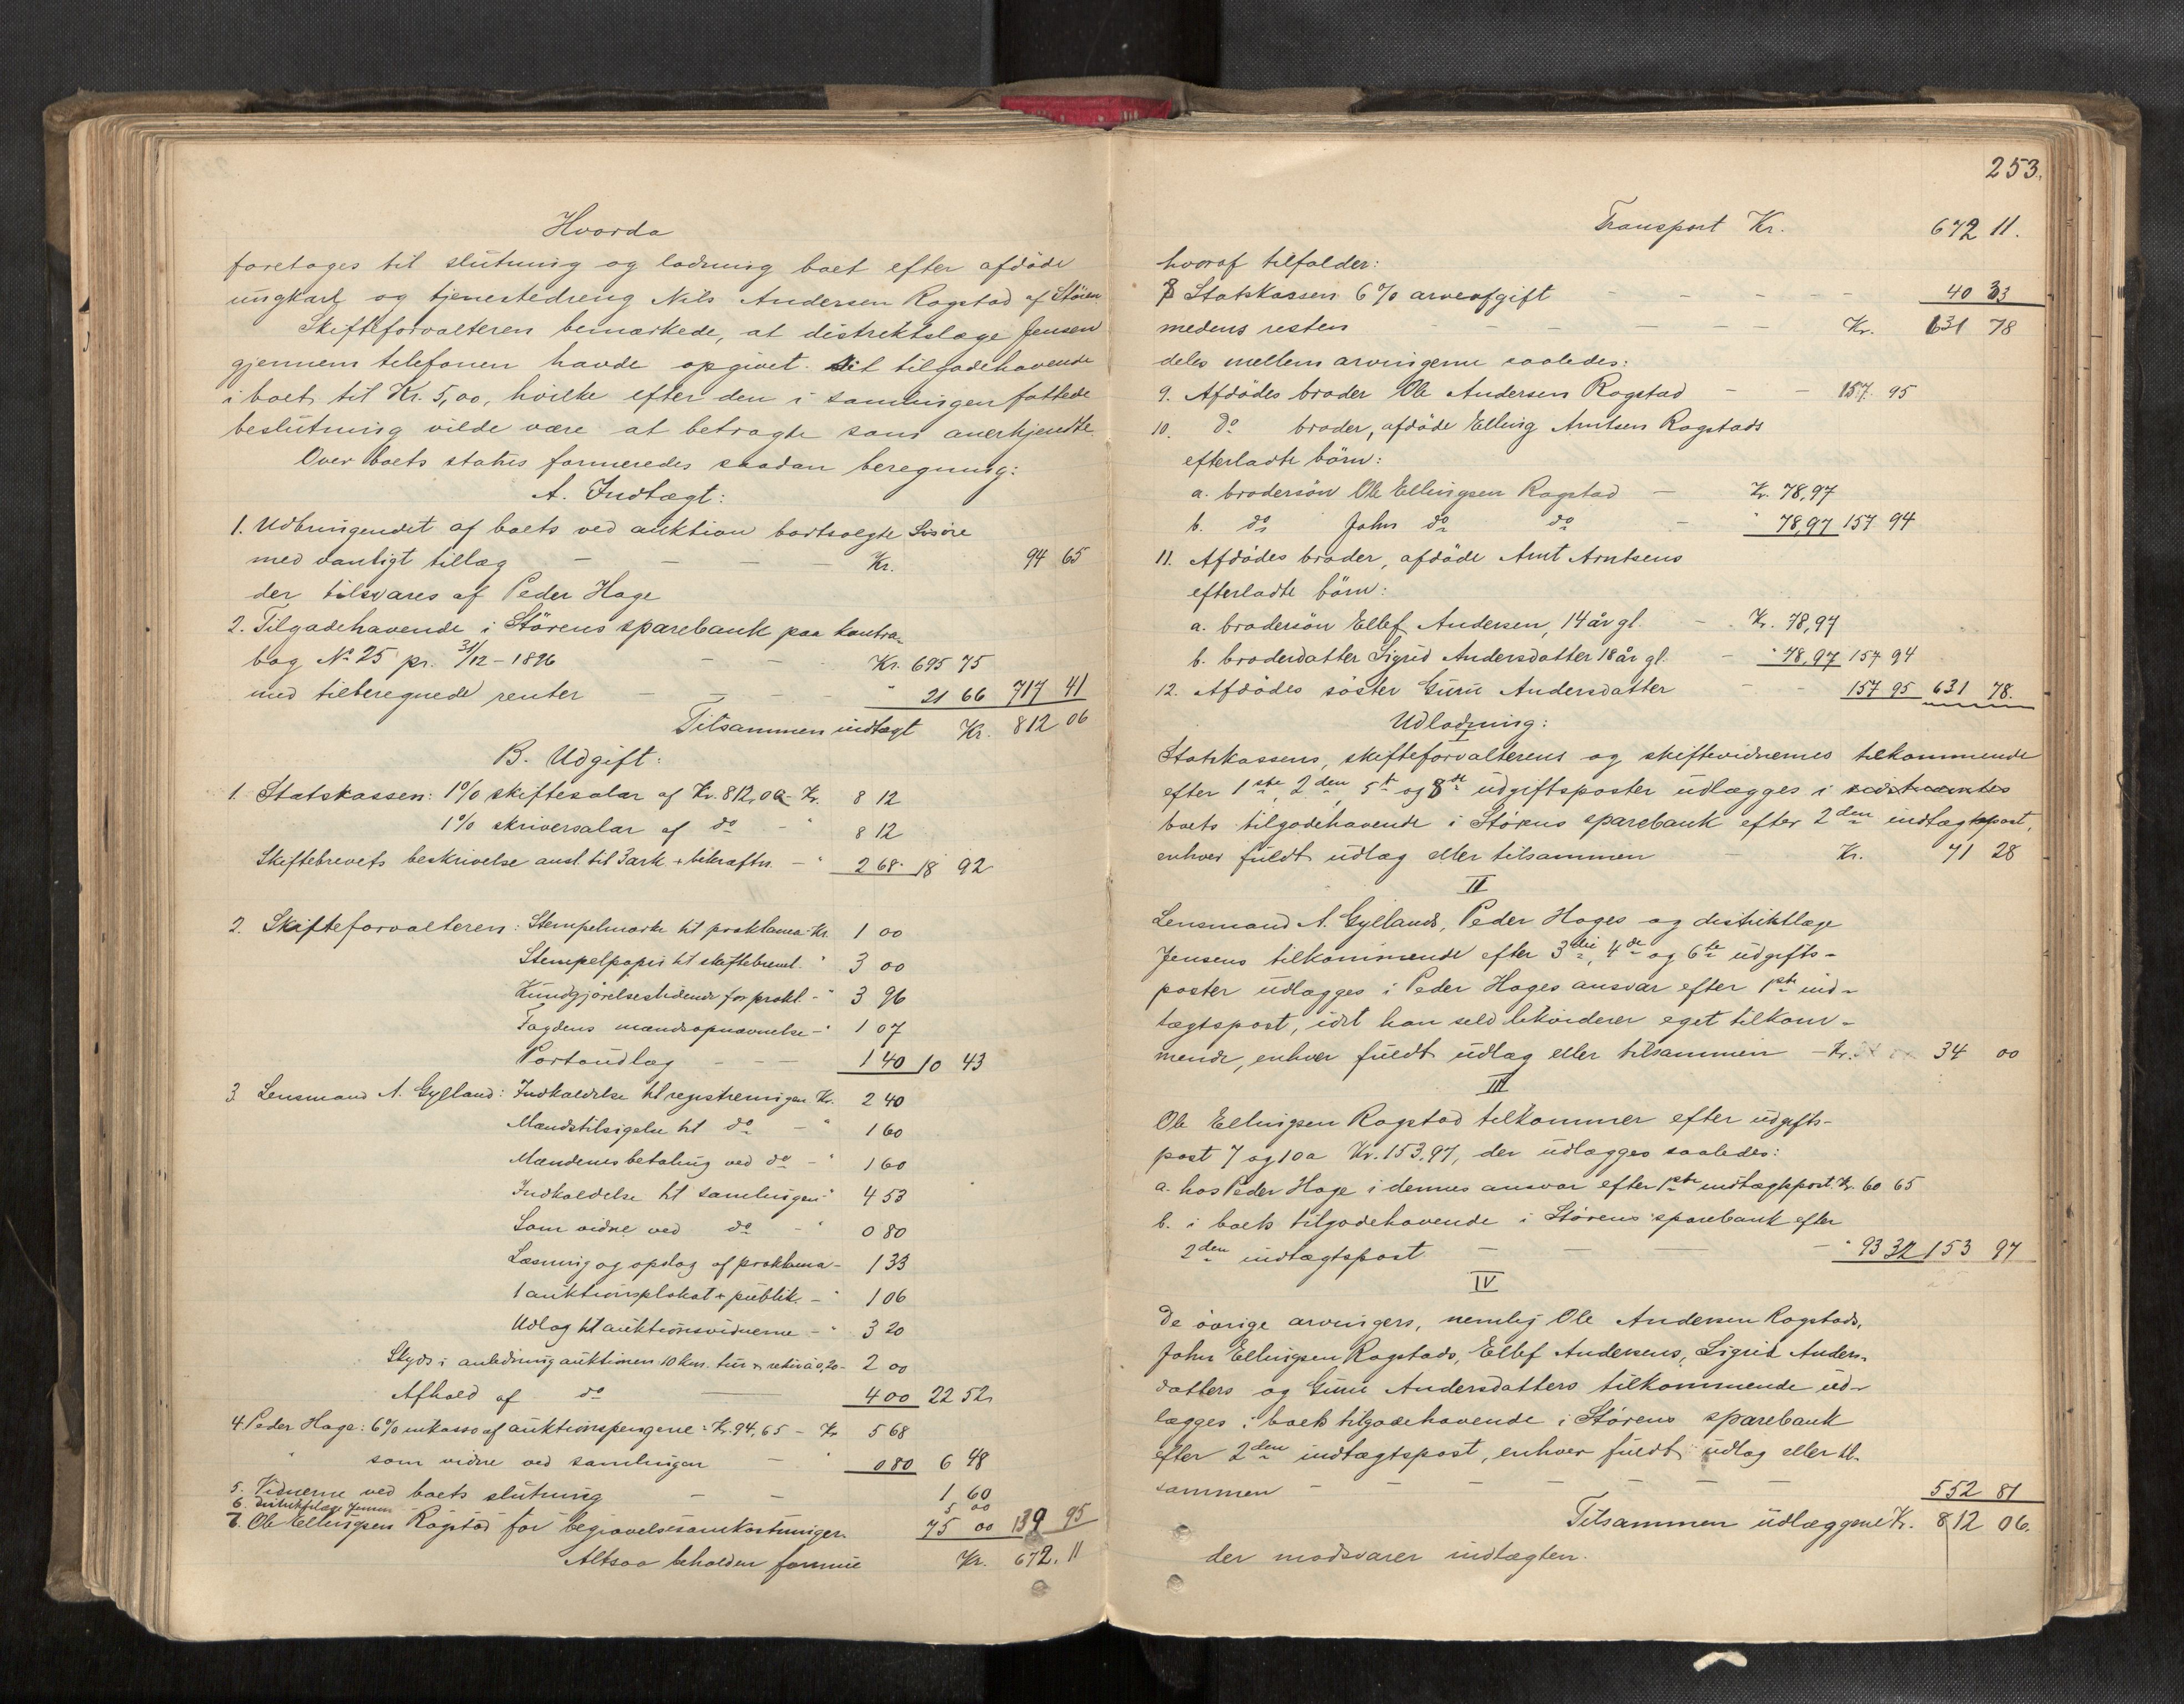 Hvorda
foretages til slutning og lodning boet efter afdöde
ungkarl og tjenestedreng Nils Andersen Rogstad af Stören
Skifteforvalteren bemærkede, at distriktslæge Jensen
gjennem telefonen havde opgivet sit tilgodehavende
i boet til Kr. 5,00, hvilke efter den i samlingen fattede
beslutning vilde være at betragte som anerkjendte.
Over boets status formeredes saadan beregning:
A. Indtægt:
1. Udbringendet af boets ved auktion bortsolgte Lösöre
med vanligt tillæg — — — — Kr. 94 65
der tilsvares af Peder Hage
2. Tilgodehavende i Störens sparebank paa kontra-
bog No 25 pr. 31/12 - 1896 — — — Kr. 695 75
med tilberegnede renter — — — " 21 66 717 41
Tilsammen indtægt Kr. 812 06
B. Udgift:
1. Statskassen: 1% skiftesalær af Kr. 812,00 - Kr. 8 12
1% skriversalær af do - " 8 12
Skiftebrevets beskrivelse ansl. til 3 ark + bekræftn. - " 2 68 18 92
2. Skifteforvalteren: Stempelmærke til proklama - Kr. 1 00
Stempelpapir til skiftebrevet " 3 00
Kundgjörelsestidende for prokl. - " 3 96
Fogdens mændsopnævnelse - " 1 07
Portoudlæg - - — 1 40 10 43
3. Lensmand A. Gylland: Indkaldelse til registreringen Kr. 2 40
Mændstilsigelse til do - " 1 60
Mændenes betaling ved do - " 1 60
Indkaldelse til samlingen " 4 53
Som vidne ved do - " 0 80
Læsning og opslag af proklama - 1 33
1 auktionsplakat + publik. - " 1 06
Udlæg til auktionsvidnerne - " 3 20
Skyds i anledning auktionen 10 km. tur + retur à 0,20 - 2 00
Afhold af do — 4 00 22 52
4. Peder Hage: 6% inkasso af auktionspengene: Kr. 94,65 - Kr 5 68
" som vidne ved samlingen - " 0 80 6 48
5. Vidnerne ved boets slutning - - 1 60
6. Distriktslæge Jensen 5 00
7. Ole Ellingsen Rogstad for begravelsesomkostninger. 75 00 139 95
Altsaa beholden formue Kr. 672. 11
253.
Transport Kr. 672 11.
hvoraf tilfalder:
8 Statskassen 6% arveafgift - - - - - 40 33
medens resten - - - - - - Kr. 631 78
deles mellem arvingerne saaledes:
9. Afdödes broder Ole Andersen Rogstad - - 157. 95
10. do broder, afdöde Elling Arntsen Rogstads
efterladte börn:
a. brodersön Ole Ellingsen Rogstad — Kr. 78,97
b. do John do do - " 78,97 157 94
11. Afdödes broder, afdöde Arnt Arntsens
efterladte börn:
a. brodersön Ellef Andersen, 14 år gl. - Kr. 78,97
b. broderdatter Sigrid Andersdatter 18 år gl. - " 78,97 157 94
12. Afdödes söster Guru Andersdatter - - 157 95 631 78.
Udlodning:
I
Statskassens, skifteforvalterens og skiftevidnernes tilkommende
efter 1ste, 2den, 5te og 8de udgiftsposter udlægges i
boets tilgodehavende i Störens sparebank efter 2den indtægtspost,
enhver fuldt udlæg eller tilsammen - Kr. 71 28
II
Lensmand A. Gyllands, Peder Hages og distriktlæge
Jensens tilkommende efter 3die, 4de og 6te udgifts-
poster udlægges i Peder Hages ansvar efter 1ste ind-
tægtspost, idet han selv likviderer eget tilkom-
mende, enhver fuldt udlæg eller tilsammen - Kr. 34 00
III
Ole Ellingsen Rogstad tilkommer efter udgifts-
post 7 og 10a Kr. 153,97, der udlægges saaledes:
a. hos Peder Hage i dennes ansvar efter 1ste indtægtspost. Kr. 60 65
b. i boets tilgodehavende i Störens sparebank efter
2den indtægtspost - — — - " 93 32 153 97
IV
De övrige arvingers, nemlig Ole Andersen Rogstads,
John Ellingsen Rogstads, Ellef Andersens, Sigrid Anders-
datters og Guru Andersdatters tilkommende ud-
lægges i boets tilgodehavende i Störens sparebank
efter 2den indtægtspost, enhver fuldt udlæg eller til-
sammen - - - - - - - 552 81
Tilsammen udlæggene Kr. 812 06.
der modsvarer indtægten.